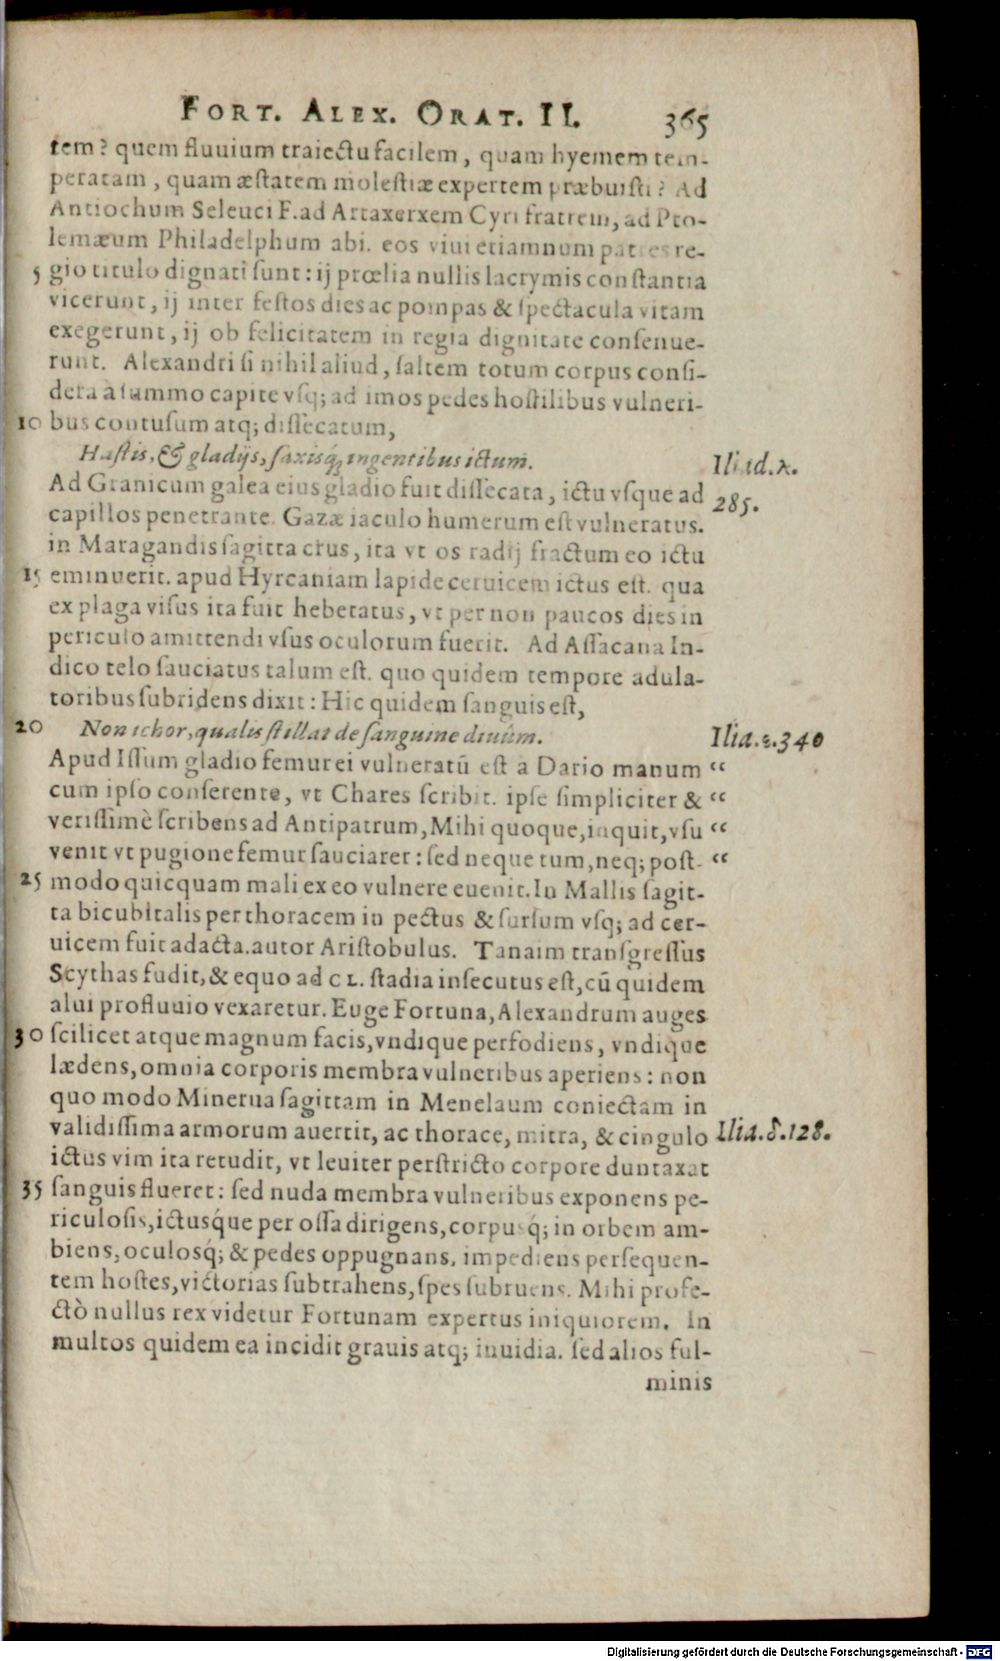 FORT. ALEX. ORAT. II. 365
tem? quem fluuium traiectu facilem, quam hyemem tem-
peratam, quam æstatem molestiæ expertem præbuisti? Ad
Antiochum Seleuci F. ad Artaxerxem Cyri fratrem, ad Pto-
lemæum Philadelphum abi. eos viui etiamnum patres re-
5 gio titulo dignati sunt: ij prœlia nullis lacrymis constantia
vicerunt, ij inter festos dies ac pompas & spectacula vitam
exegerunt, ij ob felicitatem in regia dignitate consenue-
runt. Alexandri si nihil aliud, saltem totum corpus consi-
dera à summo capite vsq; ad imos pedes hostilibus vulneri-
10 bus contusum atq; dissecatum,
Hastis, & gladijs, saxisq; ingentibus ictum. Iliad. λ.
Ad Granicum galea eius gladio fuit dissecata, ictu vsque ad 285.
capillos penetrante. Gazæ iaculo humerum est vulneratus.
in Maragandis sagitta crus, ita vt os radij fractum eo ictu
15 eminuerit. apud Hyrcaniam lapide ceruicem ictus est. qua
ex plaga visus ita fuit hebetatus, vt per non paucos dies in
periculo amittendi vsus oculorum fuerit. Ad Assacana In-
dico telo sauciatus talum est. quo quidem tempore adula-
toribus subridens dixit: Hic quidem sanguis est,
20 Non ichor, qualis stillat de sanguine diuûm. Ilia. ε. 340
Apud Issum gladio femur ei vulneratũ est a Dario manum “
cum ipso conserente, vt Chares scribit. ipse simpliciter & “
verissimè scribens ad Antipatrum, Mihi quoque, inquit, vsu “
venit vt pugione femur sauciarer: sed neque tum, neq; post- “
25 modo quicquam mali ex eo vulnere euenit. In Mallis sagit-
ta bicubitalis per thoracem in pectus & sursum vsq; ad cer-
uicem fuit adacta. autor Aristobulus. Tanaim transgressus
Scythas fudit, & equo ad CL. stadia insecutus est, cũ quidem
alui profluuio vexaretur. Euge Fortuna, Alexandrum auges
30 scilicet atque magnum facis, vndique perfodiens, vndique
lædens, omnia corporis membra vulneribus aperiens: non
quo modo Minerua sagittam in Menelaum coniectam in
validissima armorum auertit, ac thorace, mitra, & cingulo Ilia. δ. 128.
ictus vim ita retudit, vt leuiter perstricto corpore duntaxat
35 sanguis flueret: sed nuda membra vulneribus exponens pe-
riculosis, ictusq́ue per ossa dirigens, corpusq́; in orbem am-
biens, oculosq́; & pedes oppugnans, impediens persequen-
tem hostes, victorias subtrahens, spes subruens. Mihi profe-
ctò nullus rex videtur Fortunam expertus iniquiorem. In
multos quidem ea incidit grauis atq; inuidia. sed alios ful-
minis
Digitalisierung gefördert durch die Deutsche Forschungsgemeinschaft - DFG